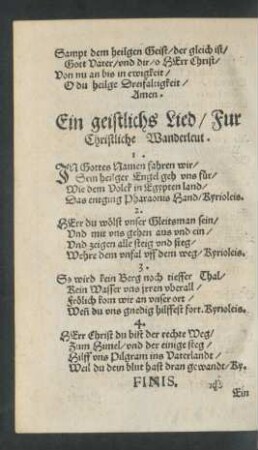 Sampt dem heilgen Geist/ der gleich ist/
Gott Vater/ vnd dir/ o HErr Christ/
Von nu an bis in ewigkeit/
O du heilge Dreifaltigkeit/
Amen.
Ein geistlichs Lied/ Fur
Christliche Wanderleut.
1.
IN Gottes Namen fahren wir/
Sein heilger Engel geh vns für/
Wie dem Volck in Egypten land/
Das entging Pharaonis Hand/ Kyrioleis.
2.
HErr du wölst vnser Gleitsman sein/
Vnd mit vns gehen aus vnd ein/
Vnd zeigen alle steig vnd steg/
Wehre dem vnfal vff dem weg/ Kyrioleis.
3.
So wird kein Berg noch tieffer Thal/
Kein Wasser vns jrren vberall/
Frölich kom wir an vnser ort/
Weñ du vns gnedig hilffest fort. Kyrioleis.
4.
HErr Christ du bist der rechte Weg/
Zum Himel/ vnd der einige steg/
Hilff vns Pilgram ins Vaterlandt/
Weil du dein blut hast dran gewandt/ Ky.
FINIS.
Ein